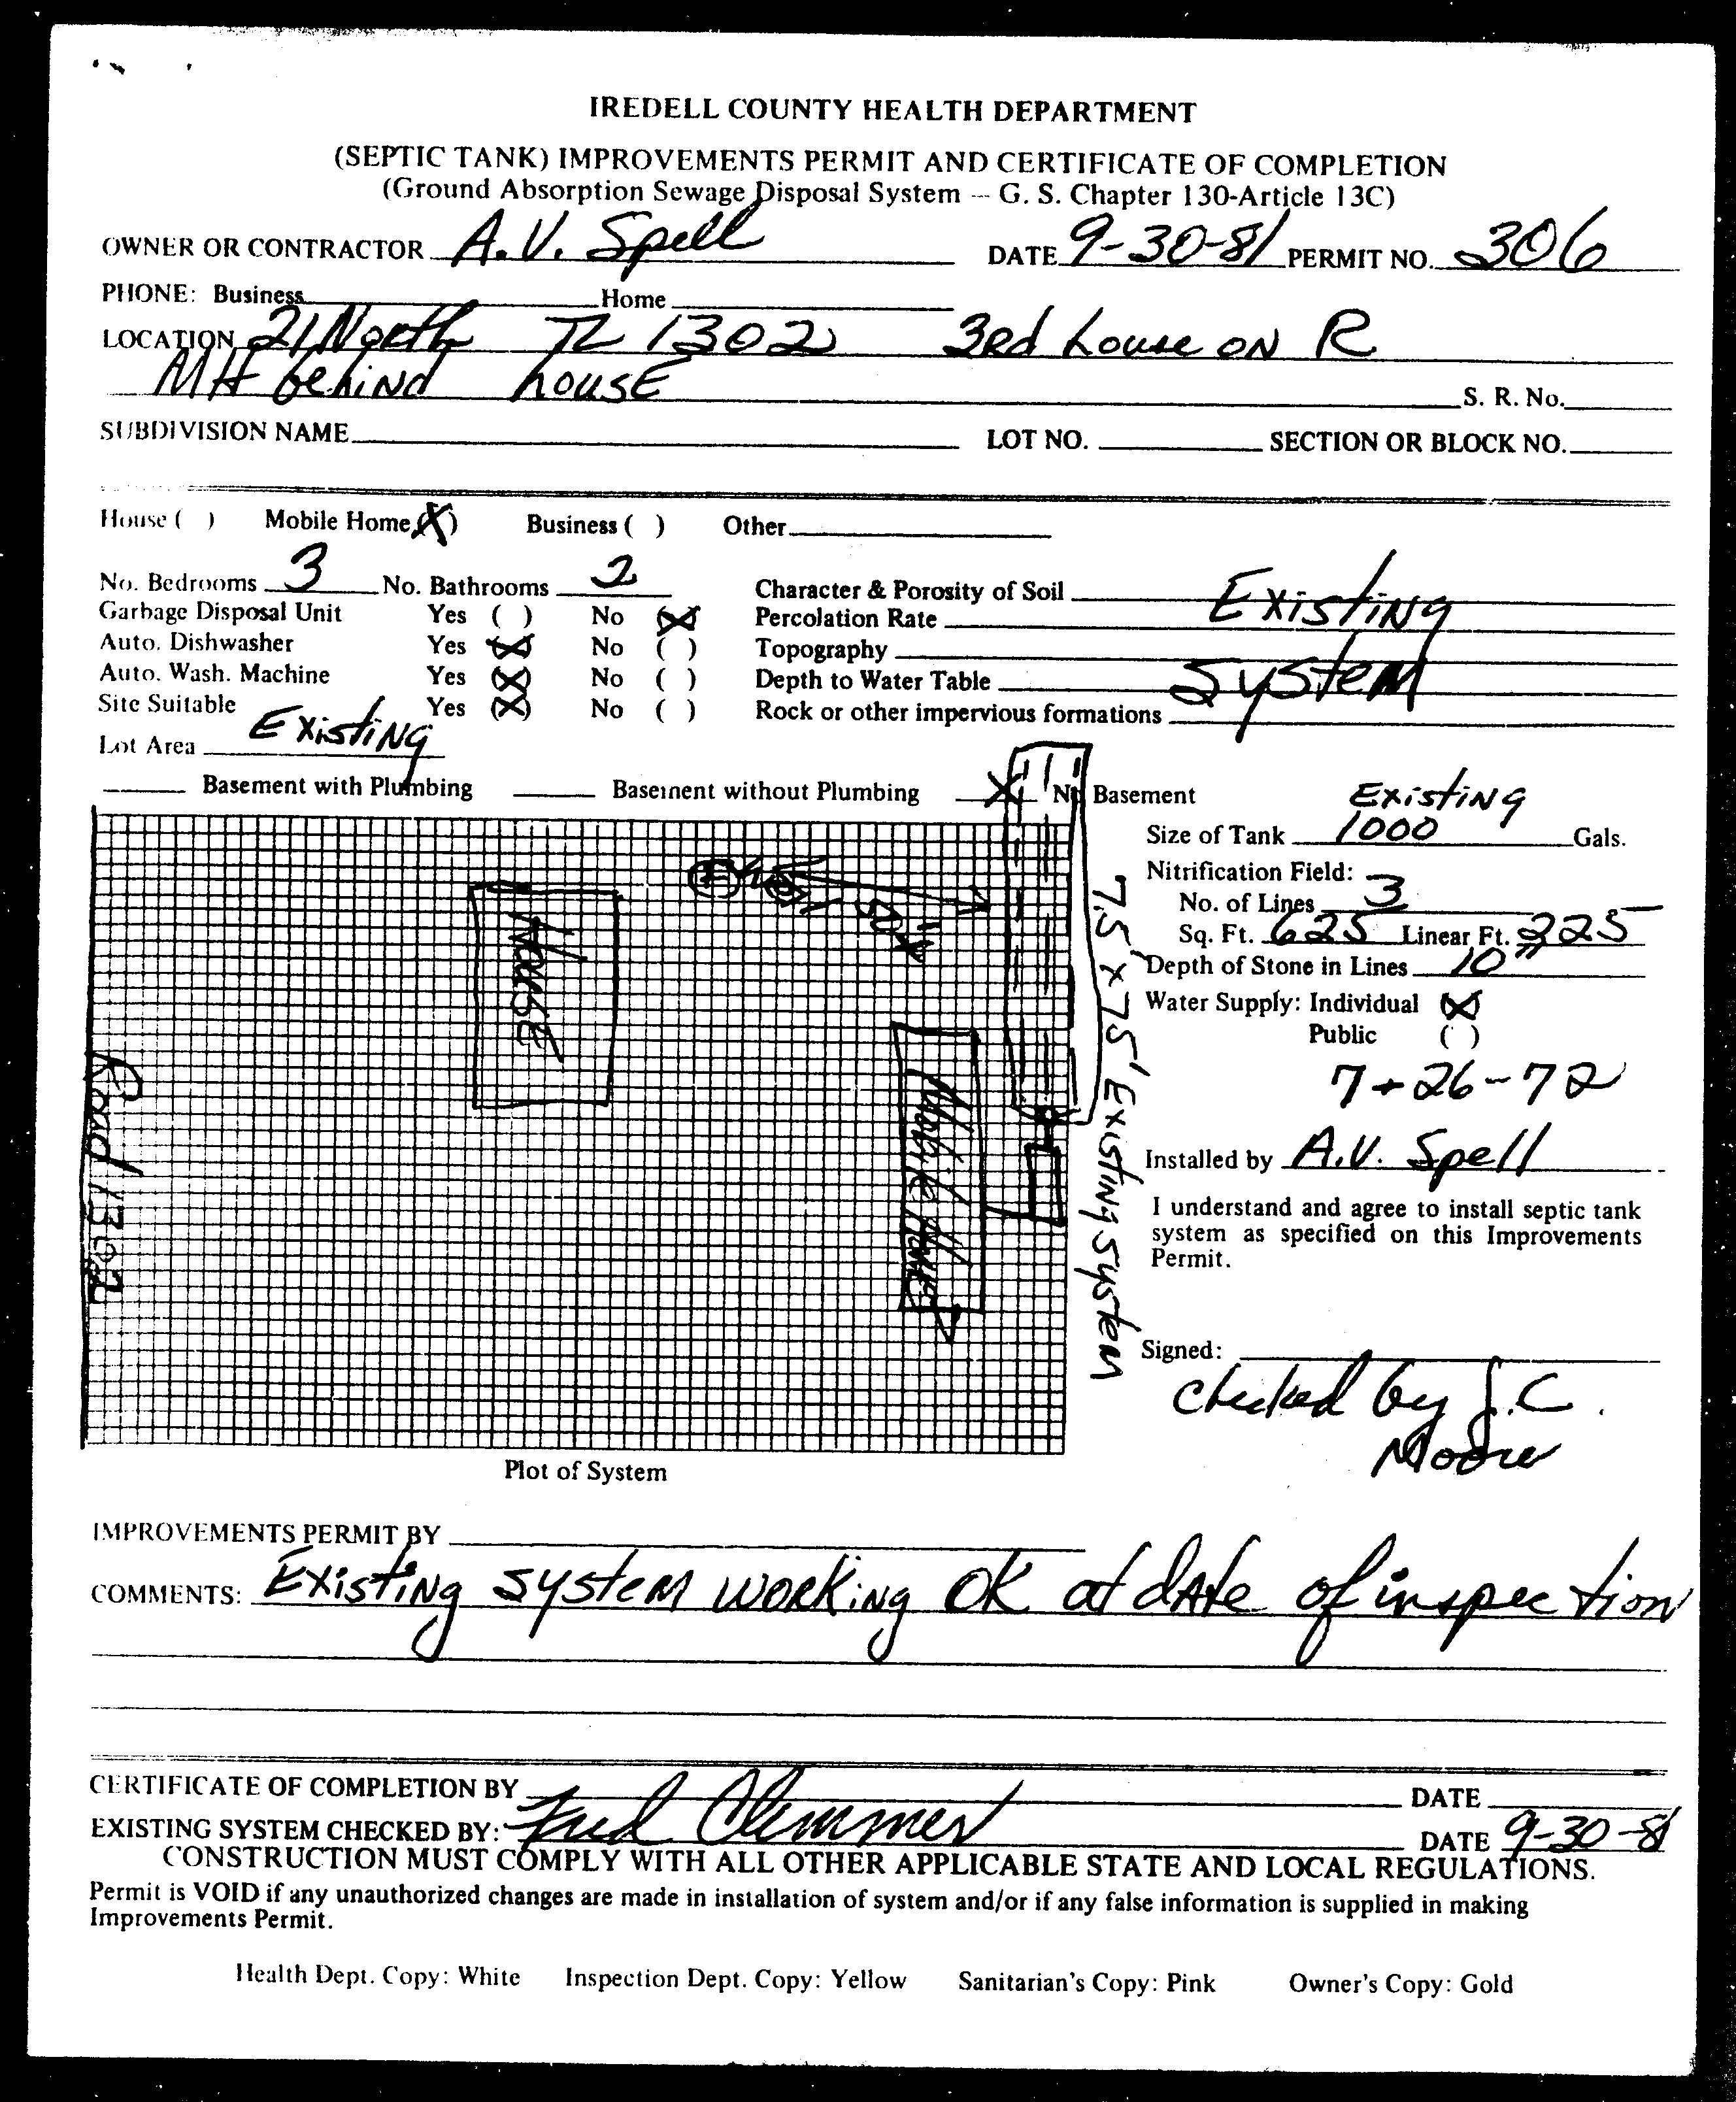 IREDELL COUNTY HEALTH DEPARTMENT
(SEPTIC TANK) IMPROVEMENTS PERMIT AND CERTIFICATE OF COMPLETION
(Ground Absorption Sewage Disposal System — G. S. Chapter 130-Article 13C)
OWNER OR CONTRACTOR A.V. Spell DATE 9-30-81 PERMIT NO. 306
PHONE: Business Home
LOCATION 21 North TL 1302 3rd house on R
MH behind house S. R. No.
SUBDIVISION NAME LOT NO. SECTION OR BLOCK NO.
House ( ) Mobile Home (X) Business ( ) Other
No. Bedrooms 3 No. Bathrooms 2 Character & Porosity of Soil Existing
Garbage Disposal Unit Yes ( ) No (X) Percolation Rate
Auto. Dishwasher Yes (X) No ( ) Topography
Auto. Wash. Machine Yes (X) No ( ) Depth to Water Table System
Site Suitable Yes (X) No ( ) Rock or other impervious formations
Lot Area Existing
Basement with Plumbing Basement without Plumbing X No Basement
Existing
Size of Tank 1000 Gals.
Nitrification Field:
No. of Lines 3
Sq. Ft. 625 Linear Ft. 225
Depth of Stone in Lines 10"
Water Supply: Individual (X)
Public ( )
7-26-72
Installed by A.V. Spell
I understand and agree to install septic tank
system as specified on this Improvements
Permit.
Signed:
Checked by J.C.
Moore
House
Mobile Home
Road 1302
7.5' x 75' Existing System
Plot of System
IMPROVEMENTS PERMIT BY
COMMENTS: Existing system working OK at date of inspection
CERTIFICATE OF COMPLETION BY DATE
EXISTING SYSTEM CHECKED BY: Fred Clemmer DATE 9-30-81
CONSTRUCTION MUST COMPLY WITH ALL OTHER APPLICABLE STATE AND LOCAL REGULATIONS.
Permit is VOID if any unauthorized changes are made in installation of system and/or if any false information is supplied in making
Improvements Permit.
Health Dept. Copy: White Inspection Dept. Copy: Yellow Sanitarian's Copy: Pink Owner's Copy: Gold